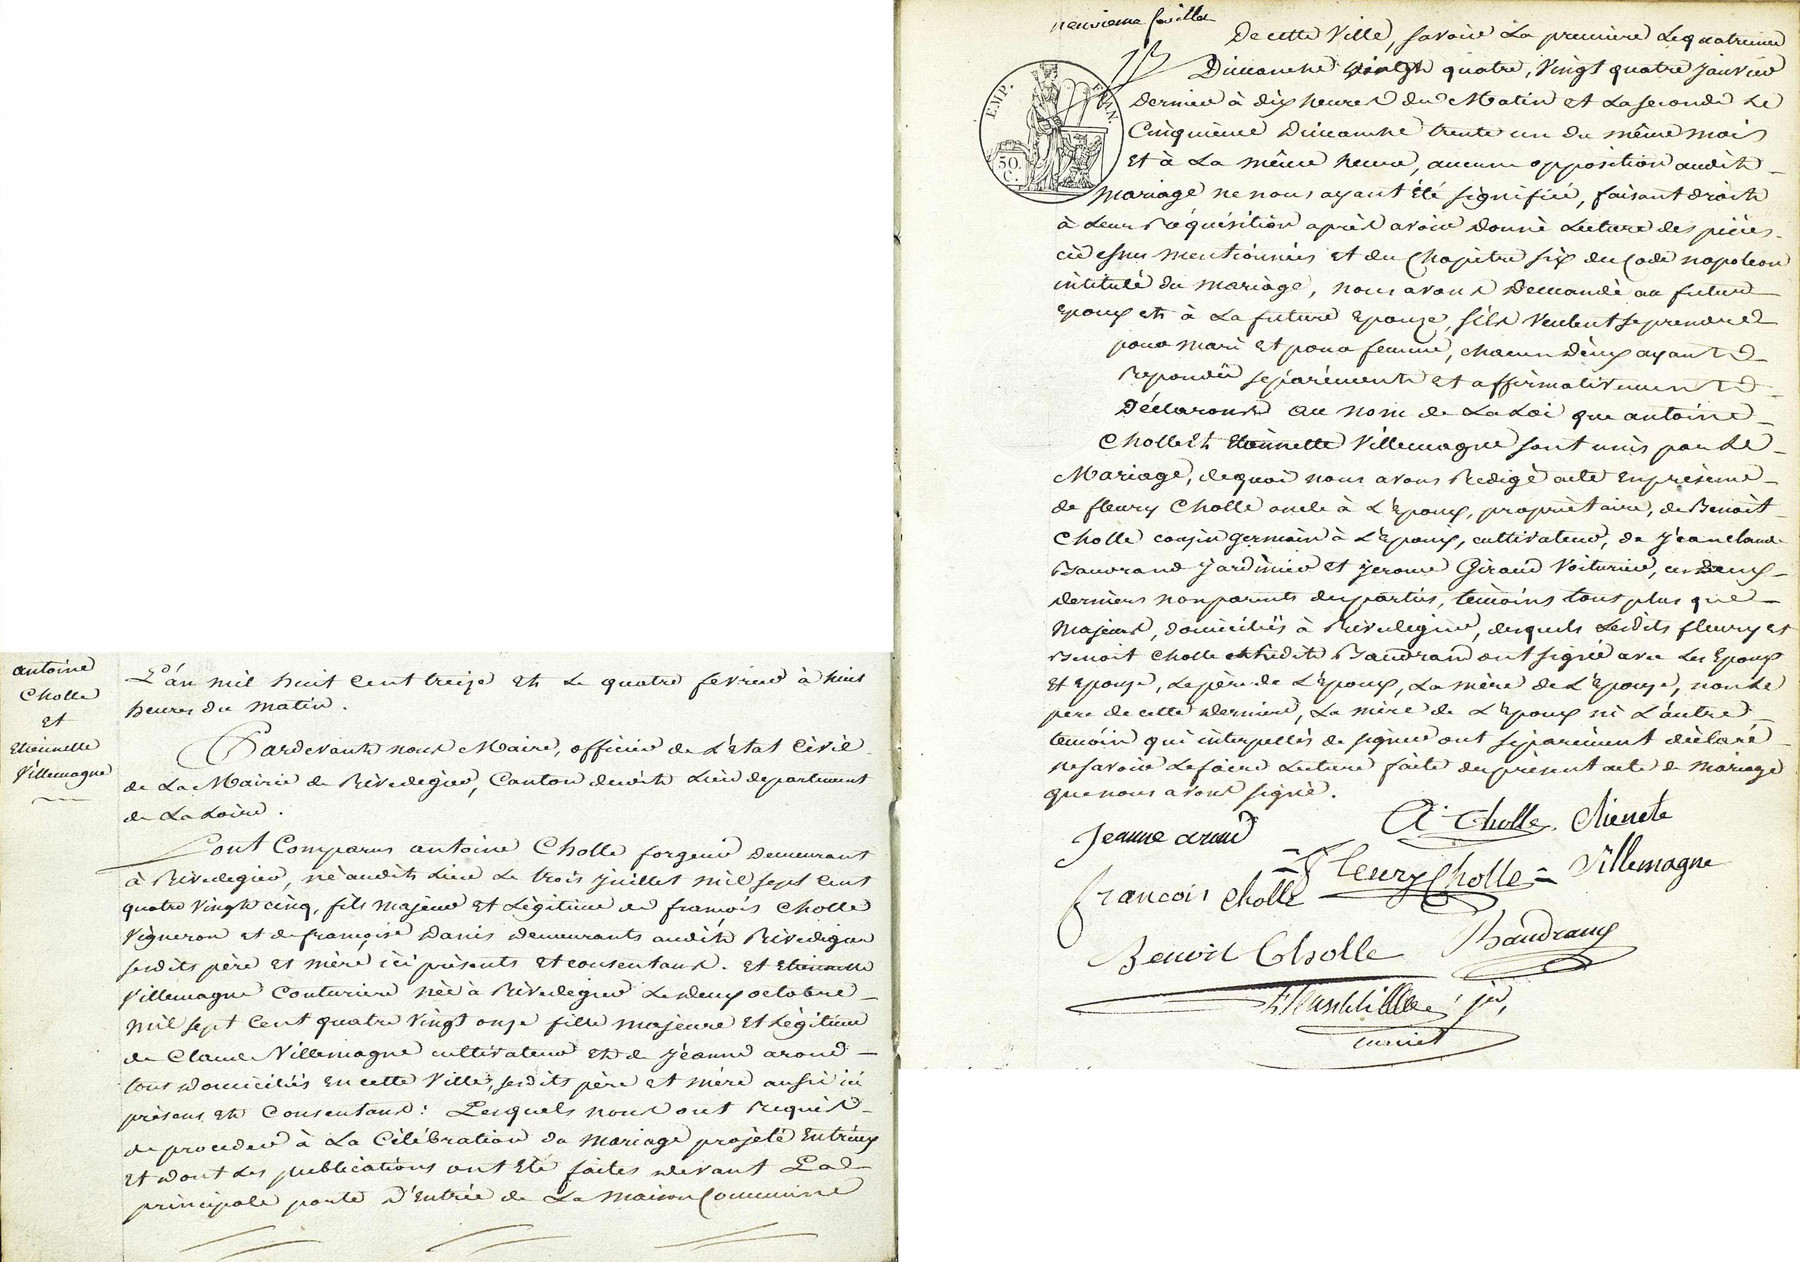 antoine
Cholle
et
Etiennette
Villemagne
L'an mil huit cent treize et le quatre fevrier à huit
heures du matin.
Pardevant nous Maire, officier de L'Etat Civil
de La Mairie de Rivedegier, Canton dudit Lieu departement
de La Loire.
Sont Comparus antoine Cholle forgeur demeurant
à Rivedegier, né audit Lieu Le trois juillet mil sept cent
quatre Vingt cinq, fils majeur et Légitime de françois Cholle
Vigneron et de françoise Danis demeurants audit Rivedegier
sesdits père et mère ici présents et consentans. et Etiennette
Villemagne Couturiere née à Rivedegier Le deux octobre
mil sept Cent quatre Vingt onze fille majeure et Légitime
de Claude Villemagne cultivateur et de Jeanne aroud
tous domiciliés en cette Ville, sesdits père et mère aussi ici
présens et Consentans: Lesquels nous ont Requis
de proceder à La Célébration du mariage projeté Entr'eux
et dont Les publications ont Eté faites devant La
principale porte D'Entrée de La maison Commune
neuvieme feuillet
De cette Ville, savoir La premiere Le quatrieme
Dimanche vingt quatre, Vingt quatre Janvier
Dernier à dix heures du Matin et La seconde Le
Cinquieme Dimanche trente un du même mois
EMP. FRAN.
50.
C.
et à La même heure, aucune opposition audit
mariage ne nous ayant Eté signifiée, faisant droit
à Leur Réquisition après avoir donné Lecture des pièces
cidessus mentionnées et du Chapitre six du Code napoleon
intitulé du mariage, nous avons Demandé au futur
Epoux et à La future Epouze, s'ils Veulent se prendre
pour mari et pour femme, chacun d'eux ayant
Repondu séparément et affirmativement
Déclarons au nom de La Loi que antoine
Cholle et Etiennette Villemagne sont unis par Le
Mariage, de quoi nous avons Redigé acte En présence
de fleury Cholle oncle à L'Epoux, propriétaire, de Benoit
Cholle cousin germain à L'Epoux, cultivateur, de Jean claude
Baudrand Jardinier et Jerome Giraud Voiturier, ces Deux
derniers non parents des parties, témoins tous plus que
Majeurs, domiciliés à Rivedegier, desquels Lesdits fleury et
Benoit Cholle et Ledit Baudrand ont signé avec Les Epoux
et Epouze, Le père de L'Epoux, La mère de L'Epouze, non Le
père de cette derniere, La mère de L'Epoux ni L'autre
témoin qui interpellés de signer ont séparément déclaré
ne savoir Le faire Lecture faite du présent acte de mariage
que nous avons signé.
Jeanne aroud
A. Cholle. Etienete
Fleury Cholle
Villemagne
francois cholle
Baudrand
Benoit Cholle